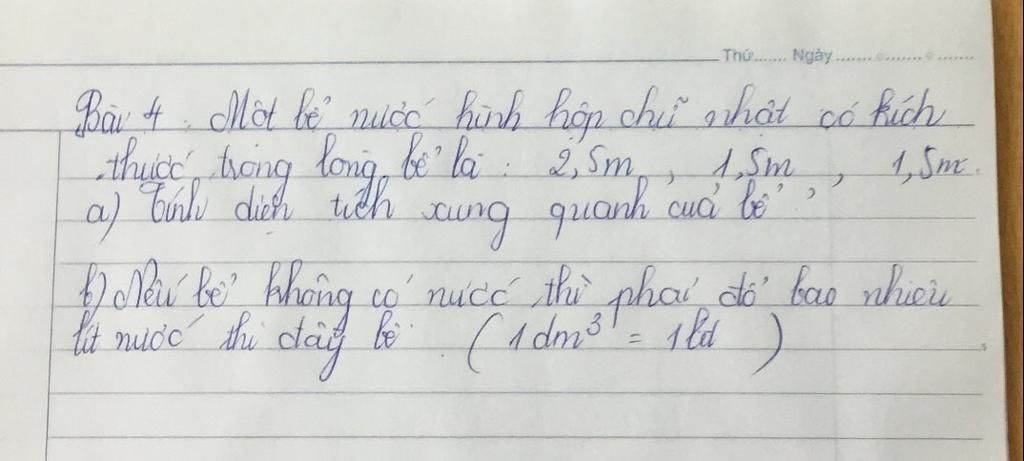 Thứ....... Ngày.......................
Bài 4. Một bể nước hình hộp chữ nhật có kích
thước trong lòng bể là : 2,5m , 1,5m , 1,5m.
a) Tính diện tích xung quanh của bể
b) Nếu bể không có nước thì phải đổ bao nhiêu
lít nước thì đầy bể. (1dm³ = 1lít)